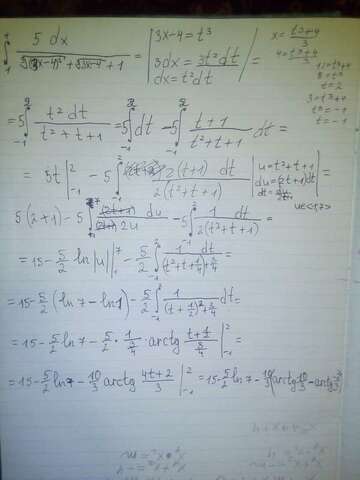 ∫ 5 dx / (∛(3x-4)² + ∛(3x-4) + 1) = | 3x-4 = t³
3dx = 3t² dt
dx = t² dt | =
x = (t³+4)/3
4 = (t³+4)/3
12 = t³+4
8 = t³
t = 2
3 = t³+4
t³ = -1
t = -1
= 5 ∫₋₁² t² dt / (t²+t+1) = 5 ∫₋₁² dt - 5 ∫₋₁² (t+1)/(t²+t+1) dt =
= 5t |₋₁² - 5 ∫₋₁² 2(t+1) dt / 2(t²+t+1) | u = t²+t+1
du = (2t+1) dt
dt = | =
5(2+1) - 5 ∫₁⁷ (2t+1)/(2t+1) du/2u - 5 ∫₋₁² 1 dt / 2(t²+t+1) = u∈<1,7>
= 15 - 5/2 ln|u| |₁⁷ - 5/2 ∫₋₁² 1 dt / ((t²+t+1/4)+3/4) =
= 15 - 5/2 (ln7 - ln1) - 5/2 ∫₋₁² 1 / ((t+1/2)²+3/4) dt =
= 15 - 5/2 ln7 - 5/2 · 1/(3/4) · arctg (t+1/2)/(3/4) |₋₁² =
= 15 - 5/2 ln7 - 10/3 arctg (4t+2)/3 |₋₁² = 15 - 5/2 ln7 - 10/3 (arctg 10/3 - arctg